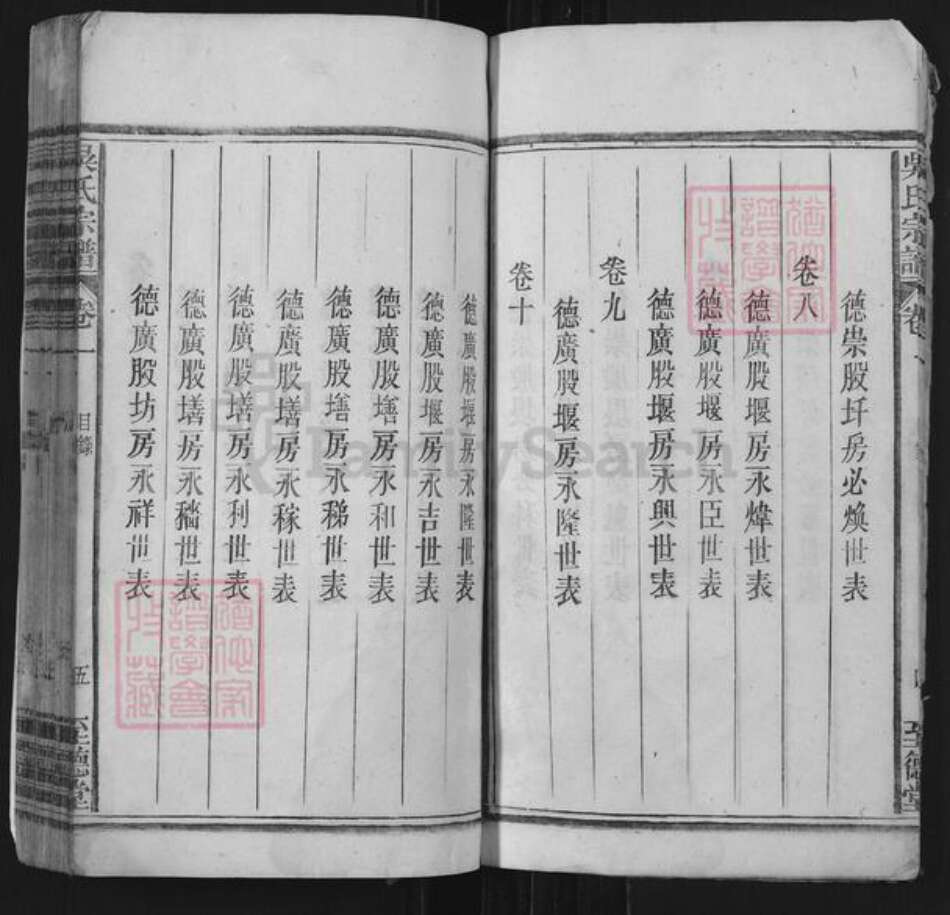 吳氏宗譜
卷一
至德堂
德崇股圩房必煥世表
卷八
德廣股堰房永煒世表
德廣股堰房永臣世表
德廣股堰房永興世表
卷九
德廣股堰房永隆世表
卷十
德廣股堰房永隆世表
德廣股堰房永吉世表
德廣股墡房永和世表
德廣股墡房永稊世表
德廣股墡房永稼世表
德廣股墡房永利世表
德廣股墡房永穡世表
德廣股坊房永祥世表
吳氏宗譜
卷一
目錄
五
至德堂
FamilySearch